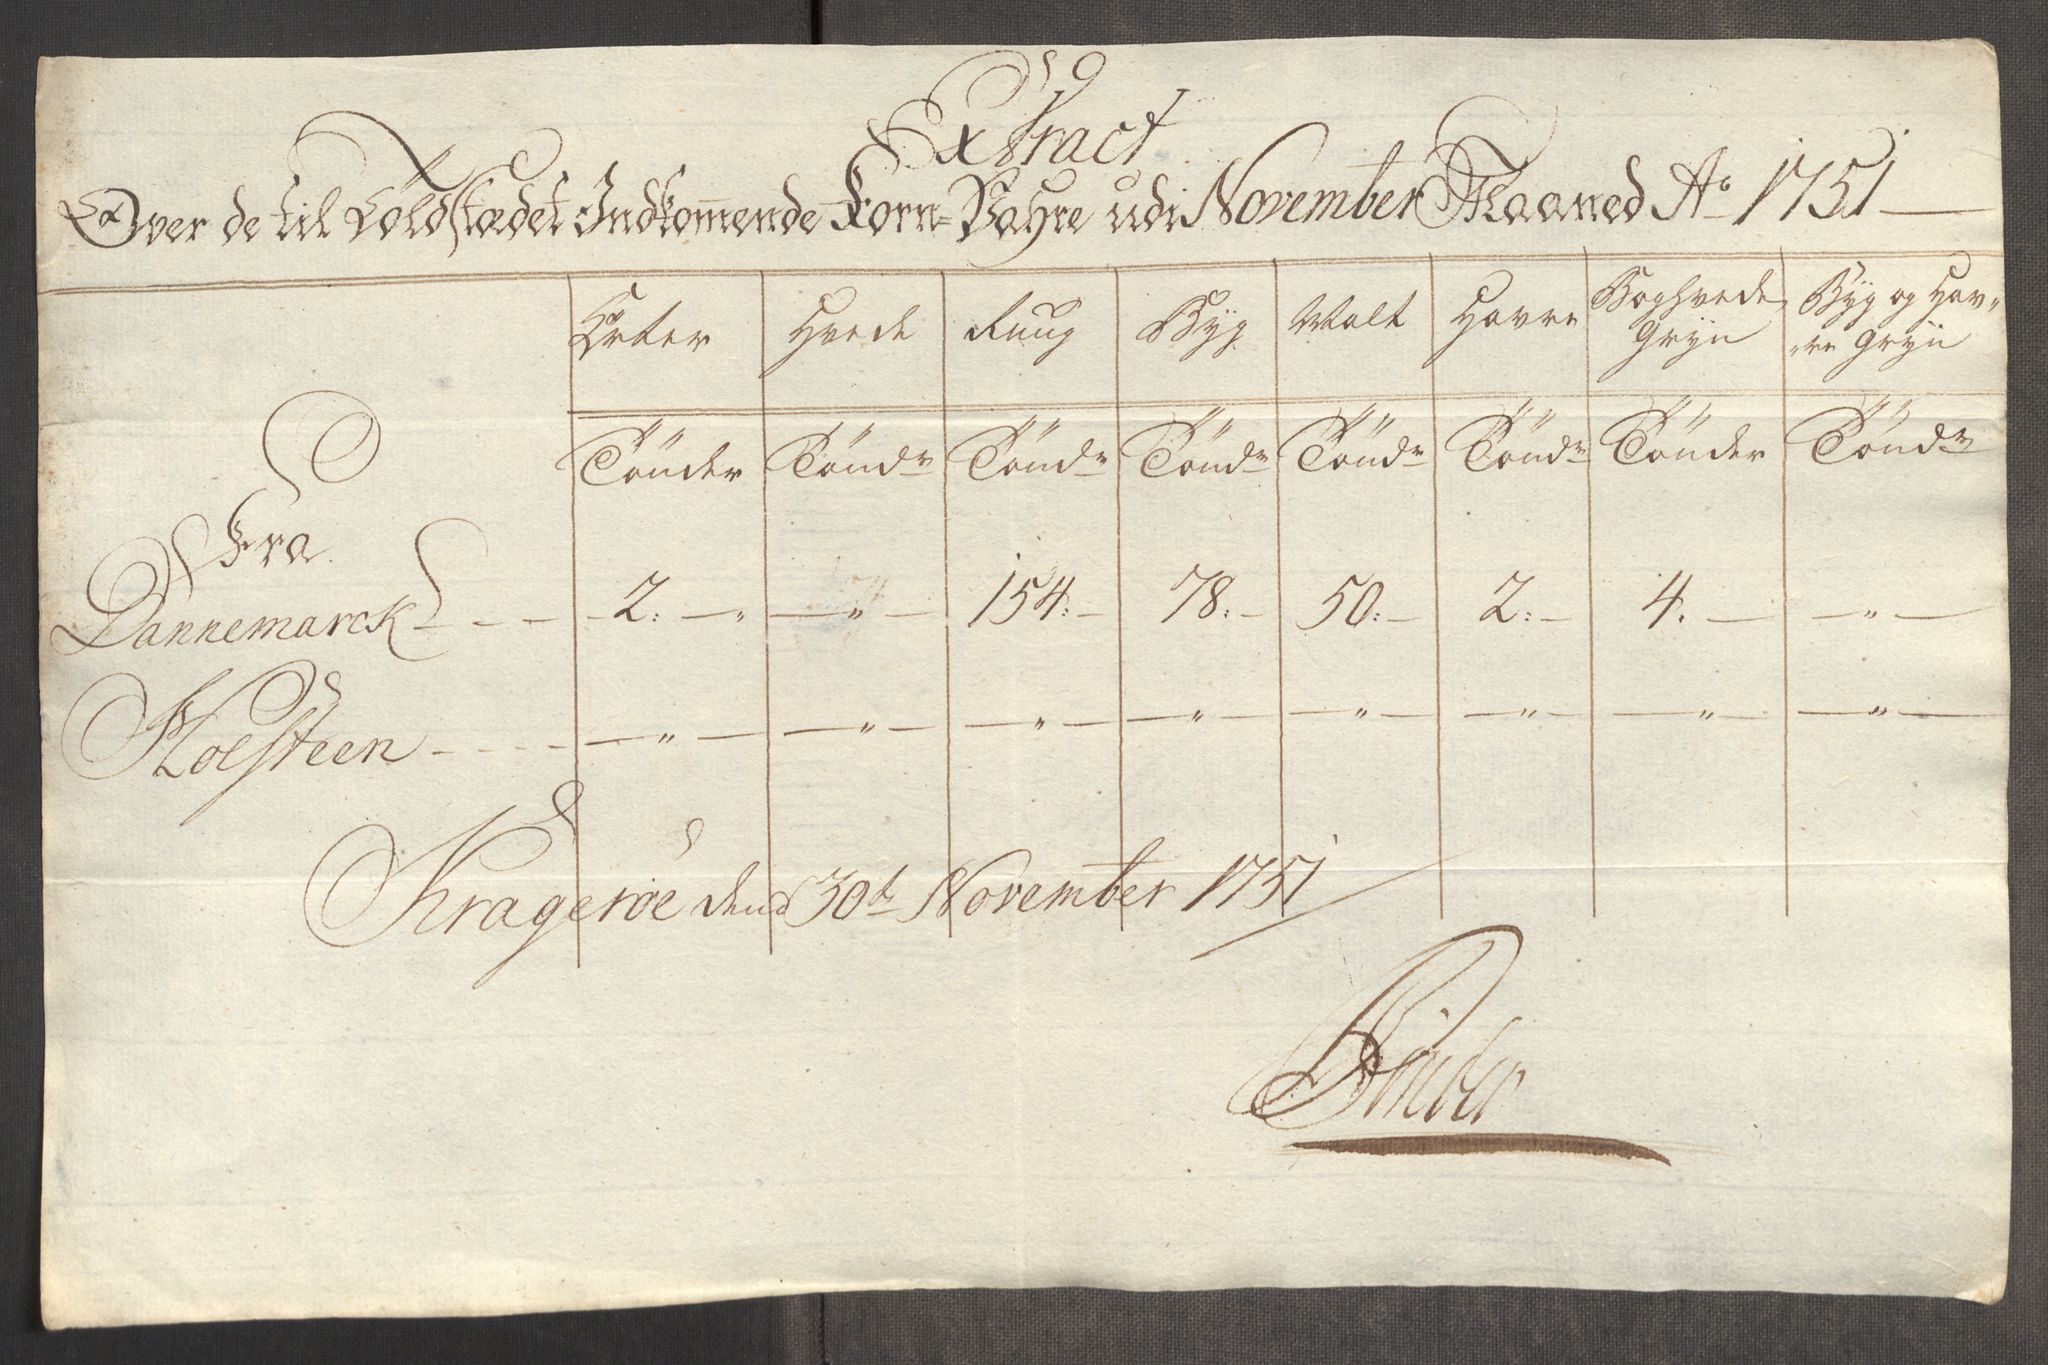 Extract
Over de til Toldstædet Indkom̄ende Korn-Vahre udi November Maaned Aº 1751
Erter Hvede Ruug Byg Malt Havre Boghvede Gryn Byg og Hav-
re Gryn
Tönder Töndr Töndr Töndr Töndr Töndr Tönder Töndr
Fra
Dannemarck 2: " 154: 78: 50: 2: 4. "
Holsteen " " " " " " " "
Krageröe den 30te November 1751